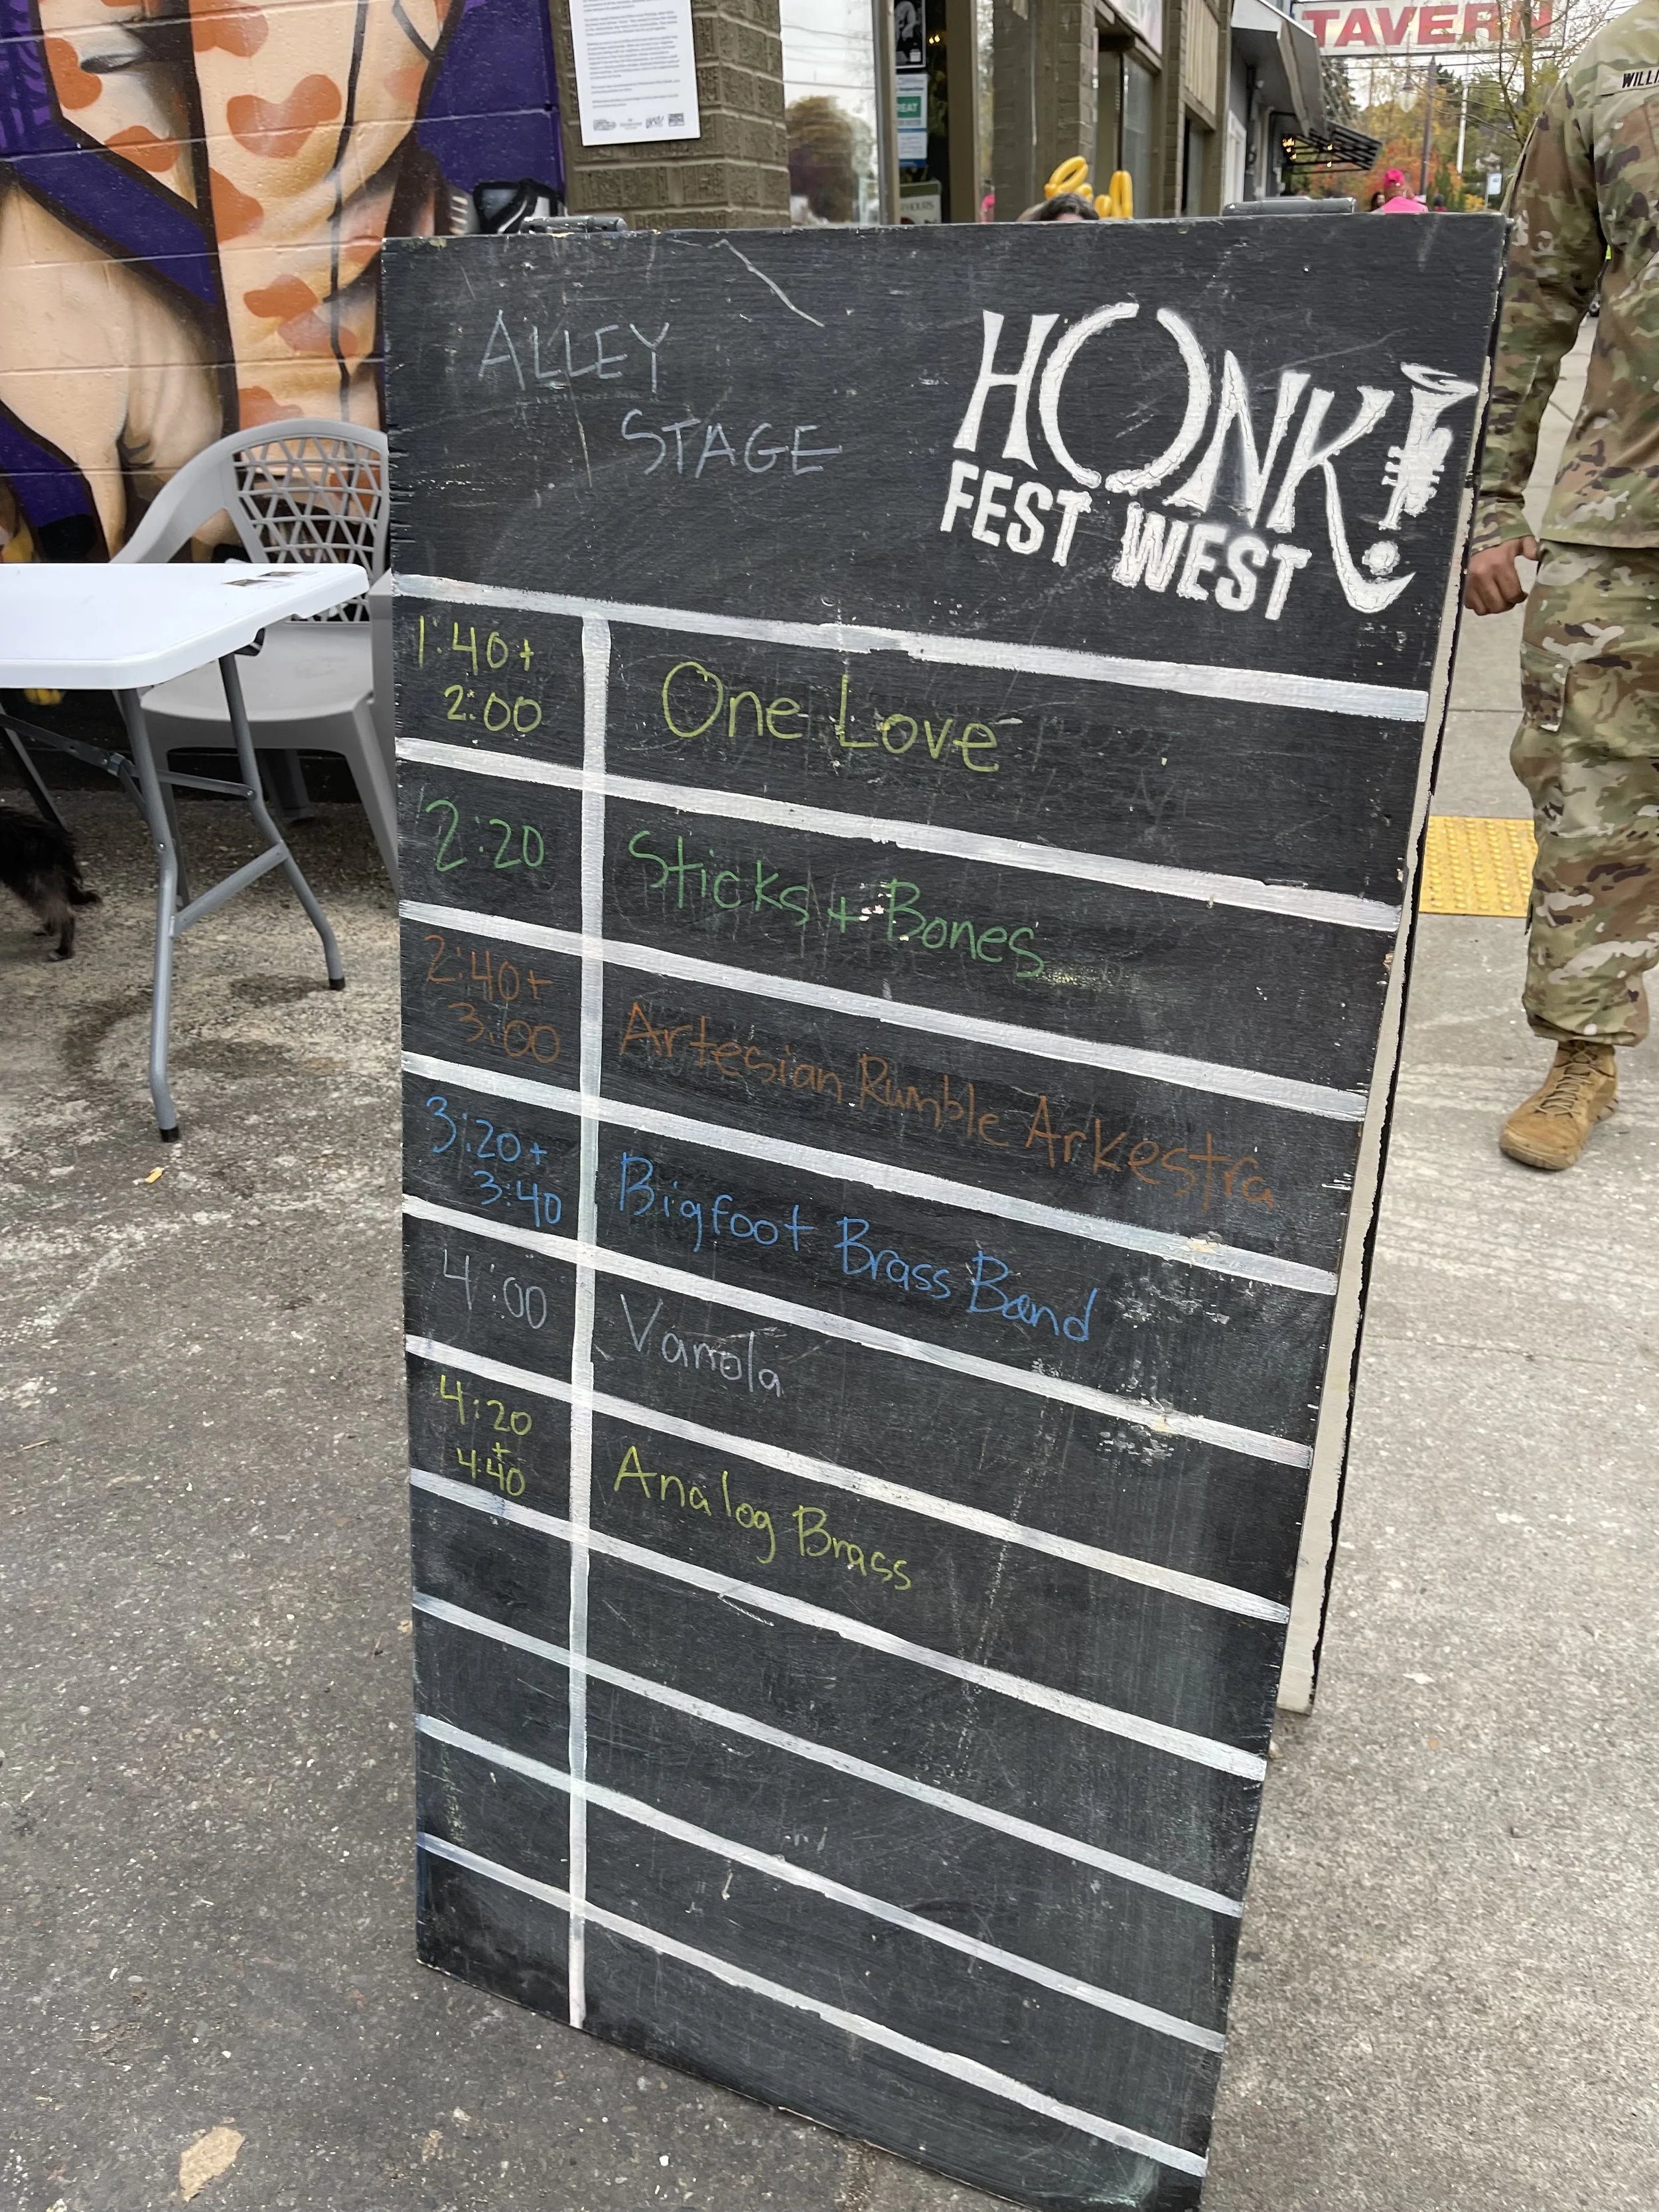 TAVERN
WILLI
EAT
HOURS
ALLEY
STAGE
HONK!
FEST WEST
1:40+
2:00
One Love
2:20
Sticks + Bones
2:40+
3:00
Artesian Rumble Arkestra
3:20+
3:40
Bigfoot Brass Band
4:00
Vamola
4:20
+
4:40
Analog Brass